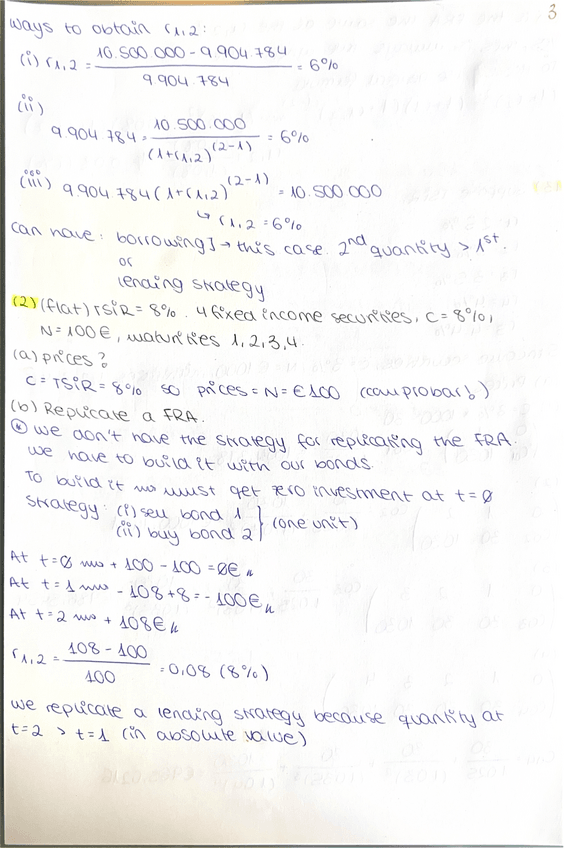 3
ways to obtain r1,2:
(i) r1,2 = (10.500.000 - 9.904.784) / 9.904.784 = 6%
(ii)
9.904.784 = 10.500.000 / (1+r1,2)^(2-1) = 6%
(iii) 9.904.784 (1+r1,2)^(2-1) = 10.500.000
↳ r1,2 = 6%
can have: borrowing] → this case. 2nd quantity > 1st.
or
lending strategy
(2) (flat) TSIR = 8%. 4 fixed income securities, C = 8%,
N = 100€, maturities 1, 2, 3, 4.
(a) prices?
C = TSIR = 8% so prices = N = €100 (comprobar!)
(b) Replicate a FRA.
* we don't have the strategy for replicating the FRA.
we have to build it with our bonds.
To build it → must get zero investment at t=0
strategy: (i) sell bond 1 } (one unit)
(ii) buy bond 2
At t=0 → + 100 - 100 = 0€ //
At t=1 → - 108 + 8 = - 100€ //
At t=2 → + 108€ //
r1,2 = (108 - 100) / 100 = 0,08 (8%)
we replicate a lending strategy because quantity at
t=2 > t=1 (in absolute value)